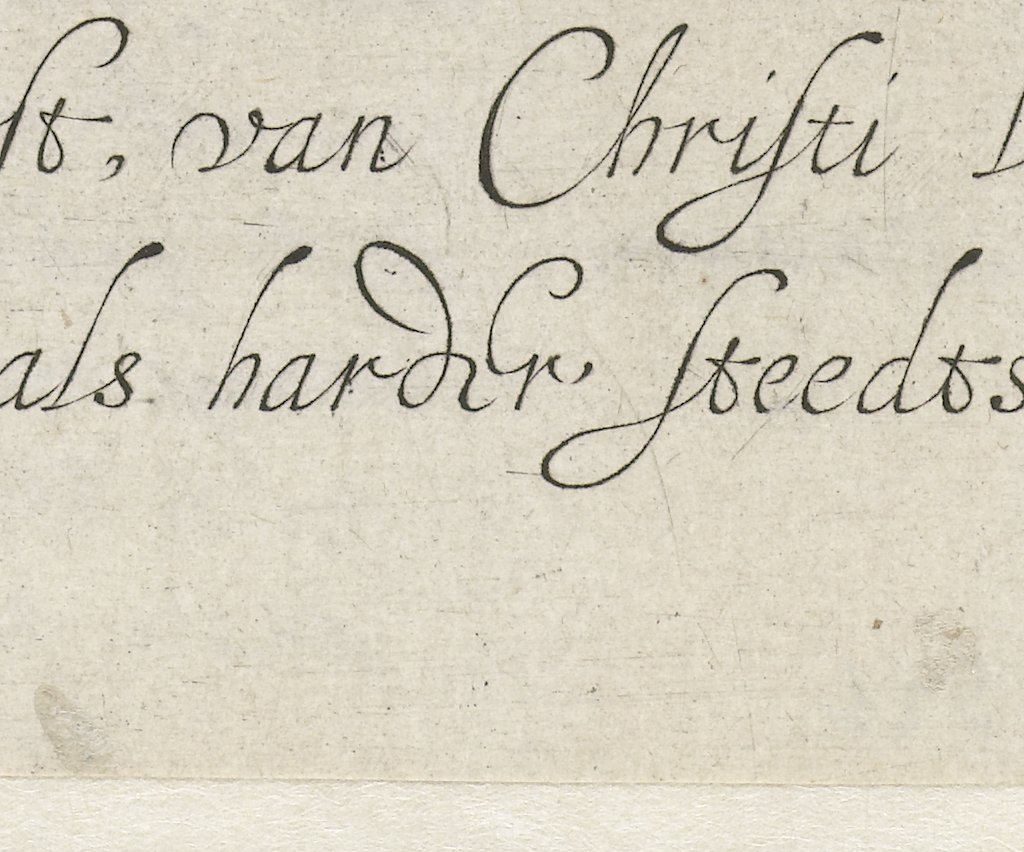 st, van Christi
als harder steedts